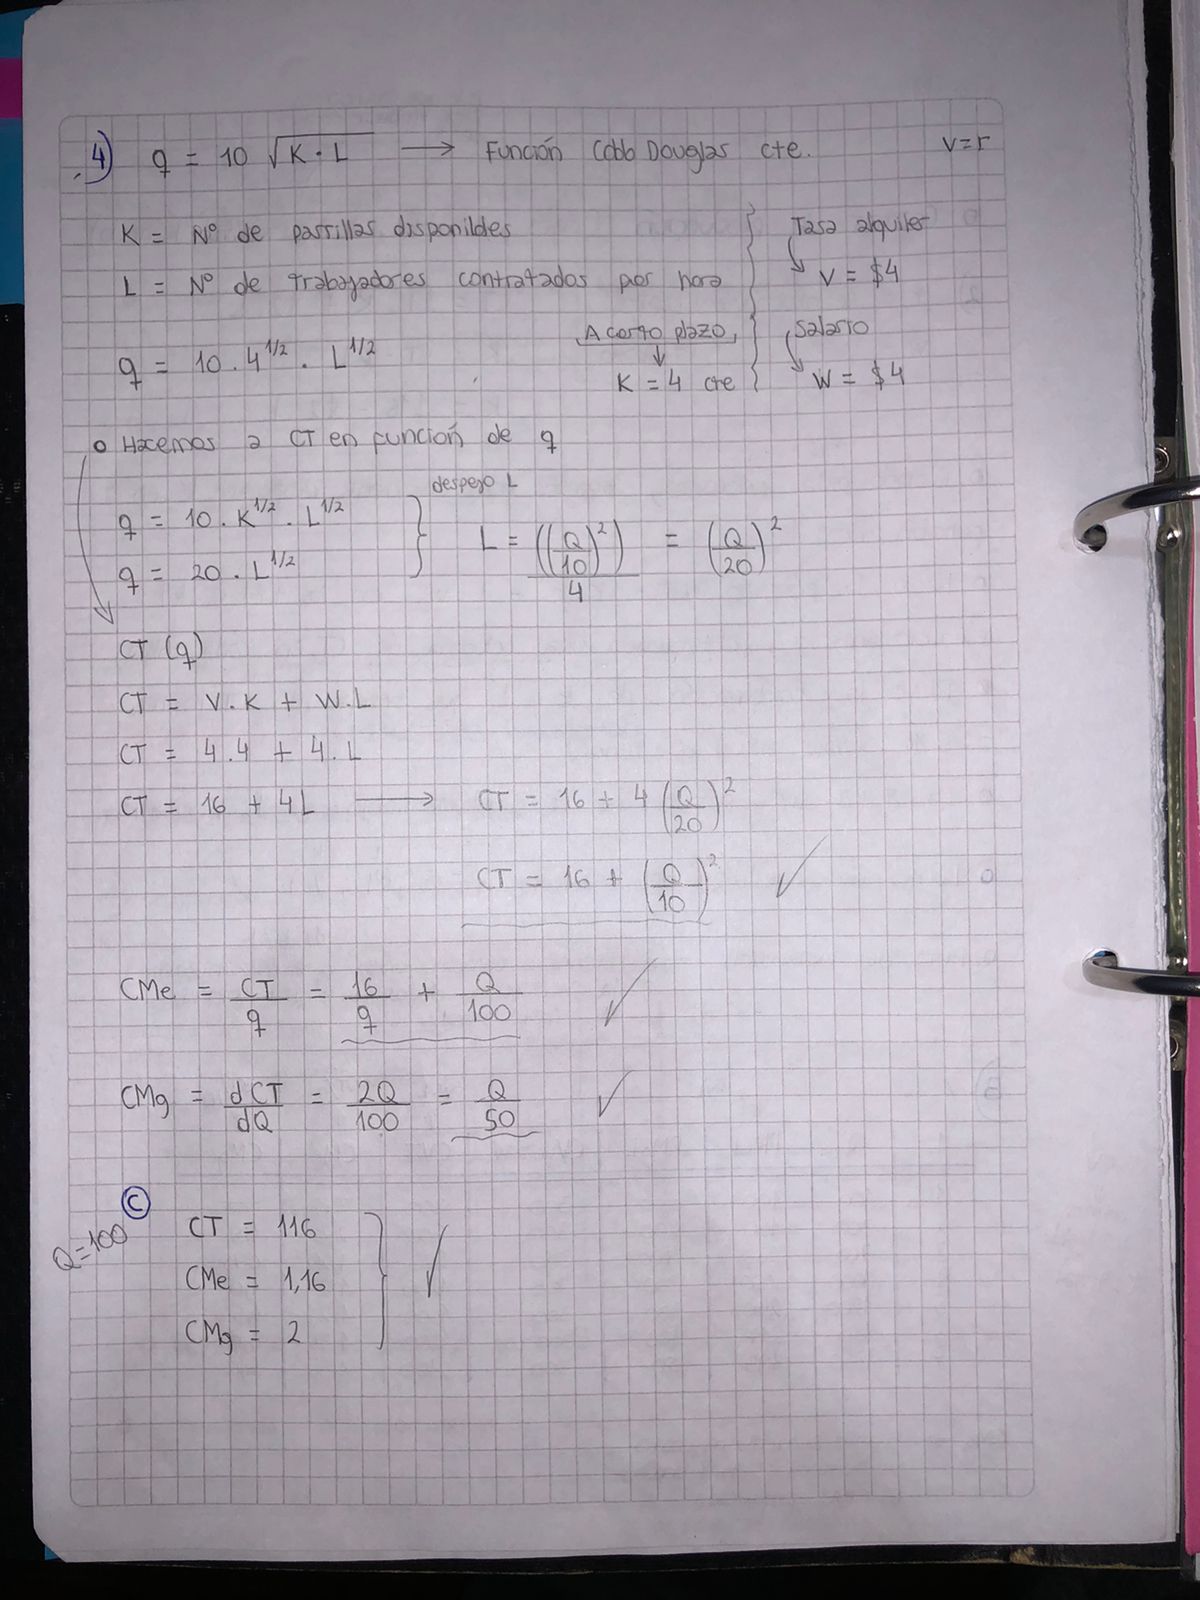 4) q = 10 √K · L → Función Cobb Douglas cte. v=r
K = Nº de parrillas disponibles
L = Nº de trabajadores contratados por hora
Tasa alquiler
v = $4
A corto plazo,
K = 4 cte
Salario
W = $4
q = 10 . 4^1/2 . L^1/2
o Hacemos a CT en función de q
q = 10 . K^1/2 . L^1/2
q = 20 . L^1/2
despejo L
L = ((Q/10)^2)/4 = (Q/20)^2
CT (q)
CT = V.K + W.L
CT = 4.4 + 4.L
CT = 16 + 4L → CT = 16 + 4 (Q/20)^2
CT = 16 + (Q/10)^2 ✓
CMe = CT/q = 16/q + Q/100 ✓
CMg = dCT/dQ = 2Q/100 = Q/50 ✓
C
Q=100
CT = 116
CMe = 1,16
CMg = 2
✓